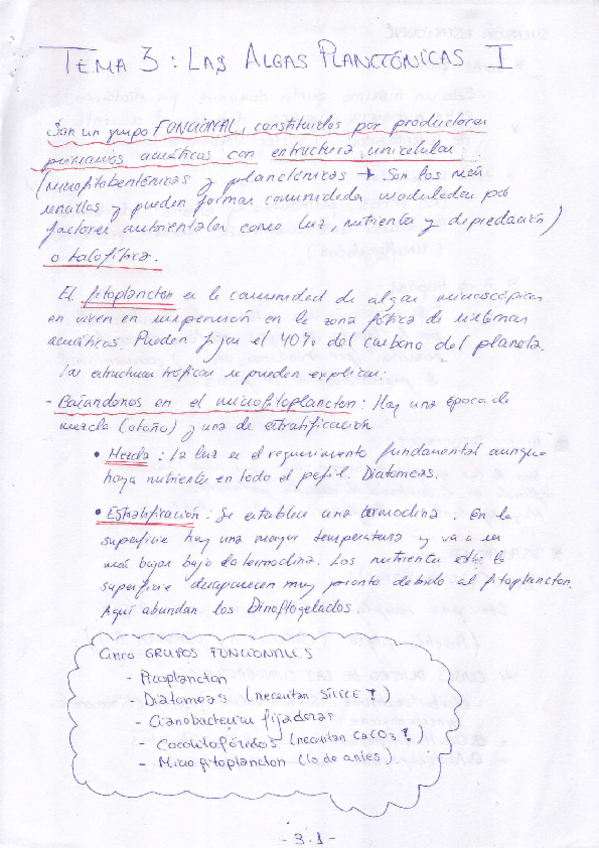 TEMA 3 : LAS ALGAS PLANCTÓNICAS I
Son un grupo FUNCIONAL, constituidas por productores
primarios acuáticos con estructura unicelular
(microfitobentónicas y planctónicas → Son las más
sencillas y pueden formar comunidades moduladas por
factores ambientales como luz, nutrientes y depredación)
o talofítica.
El fitoplancton es la comunidad de algas microscópicas
en viven en suspensión en la zona fótica de sistemas
acuáticos. Pueden fijar el 40% del carbono del planeta.
Las estructuras tróficas se pueden explicar:
- Basándonos en el microfitoplancton : Hay una época de
mezcla (otoño) y una de estratificación
• Mezcla : La luz es el requerimiento fundamental aunque
haya nutrientes en todo el perfil. Diatomeas.
• Estratificación : Se establece una termoclina. En la
superficie hay una mayor temperatura y va a ser
más bajas bajo la termoclina. Los nutrientes de la
superficie desaparecen muy pronto debido al fitoplancton.
Aquí abundan los Dinoflagelados.
Cinco GRUPOS FUNCIONALES
- Picoplancton
- Diatomeas (necesitan SÍLICE ?)
- Cianobacterias fijadoras
- Cocolitofóridos (necesitan CaCO3 ?)
- Microfitoplancton (lo de antes)
- 3.1 -